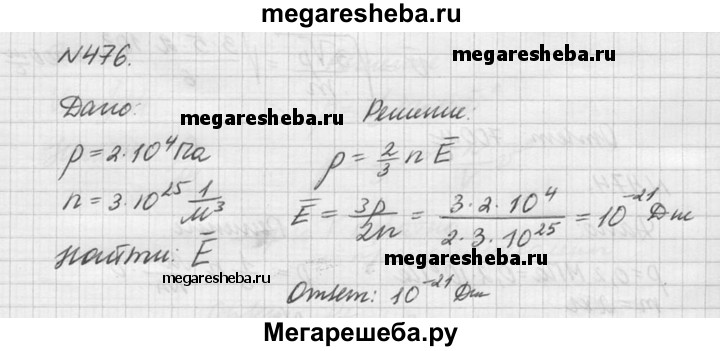 megaresheba.ru
N476.
megaresheba.ru
Дано:
megaresheba.ru
Решение:
p = 2·10⁴ Па
p = 2/3 n Ē
n = 3·10²⁵ 1/м³
Ē = 3p/2n = 3·2·10⁴/2·3·10²⁵ = 10⁻²¹ Дж
найти: Ē
megaresheba.ru
megaresheba.ru
Ответ: 10⁻²¹ Дж
Мегарешеба.ру